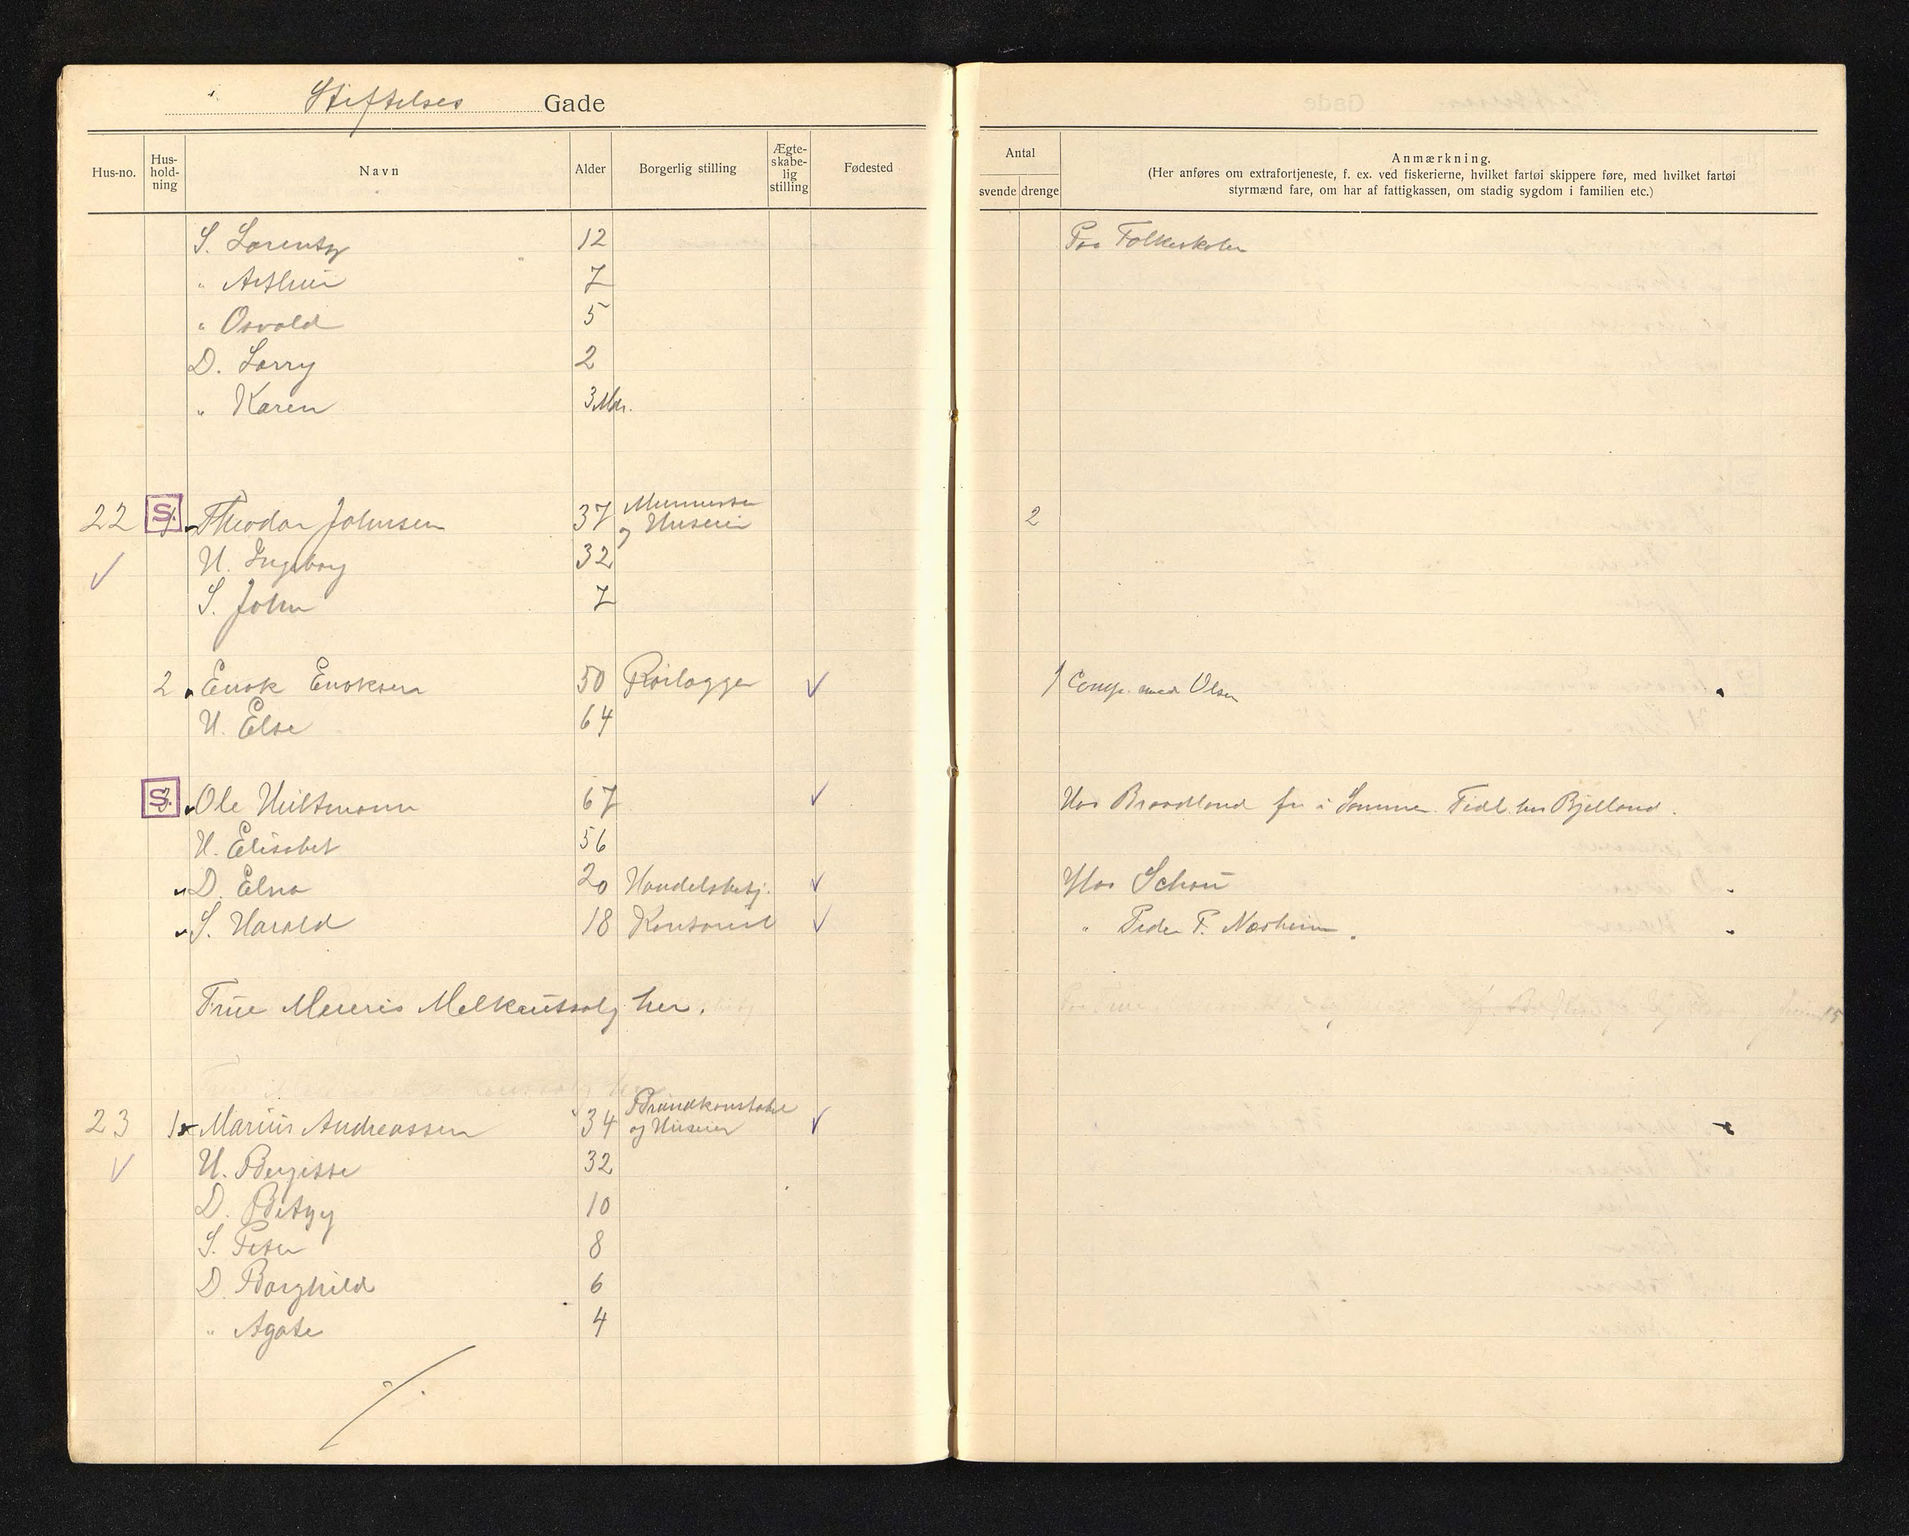 Stiftelses Gade
Hus-no.
Hus-
hold-
ning
Navn
Alder
Borgerlig stilling
Ægte-
skabe-
lig
stilling
Fødested
Antal
svende drenge
Anmærkning.
(Her anføres om extrafortjeneste, f. ex. ved fiskerierne, hvilket fartøi skippere føre, med hvilket fartøi
styrmænd fare, om har af fattigkassen, om stadig sygdom i familien etc.)
S. Lorentz 12 Paa Folkeskolen
" Arthur 7
" Osvald 5
D. Larry 2
" Karen 3 Mdr.
22 1 S. Theodor Johnsen 37 Murmester og Huseier 2
H. Ingeborg 32
S. John 7
2 Enok Enoksen 50 Rørlægger 1 Comp. med Olsen
H. Else 64
3. S. Ole 67 Hos Braadland før i Sommer. Tidl. hos Bjelland.
H. Elisabet 56
D. Elna 20 Handelsbetj. Hos Schou
S. Harald 18 Kontorist " Peder F. Nærheim.
Frue Meieris Melkeutsalg her.
23 1 Marius Andreassen 34 Brandkonstabel og Huseier
H. Bergitte 32
D. Betzy 10
S. Peter 8
D. Borghild 6
" Agate 4